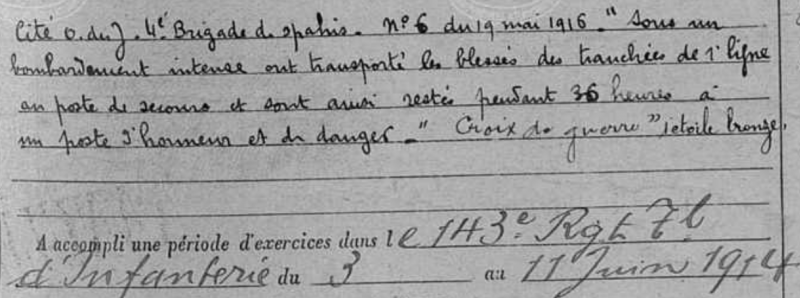 Cité O. du J. 4e Brigade de spahis. N° 6 du 19 mai 1916 - "Sous un
bombardement intense ont transporté les blessés des tranchées de 1e ligne
au poste de secours et sont ainsi restés pendant 36 heures à
un poste d'honneur et de danger - " Croix de guerre " étoile bronze,
A accompli une période d'exercices dans le 143e Rgt Tl
d'Infanterie du 3 au 11 Juin 1914